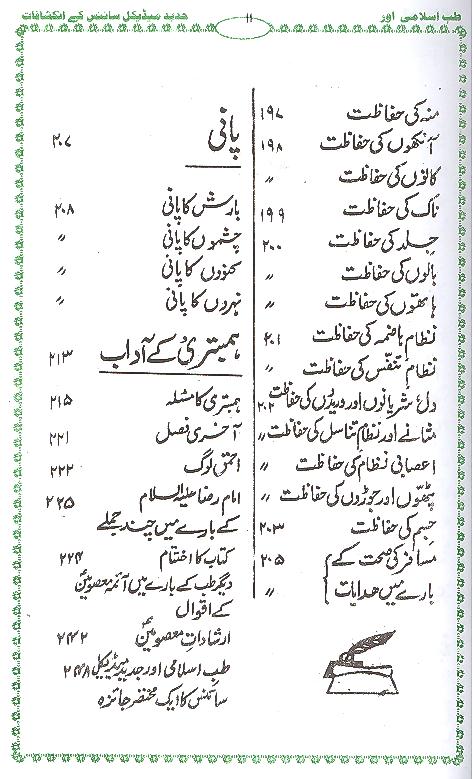 طب اسلامی اور
۱۱
جدید میڈیکل سائنس کے انکشافات
منہ کی حفاظت ۱۹۷
آنکھوں کی حفاظت ۱۹۸
کانوں کی حفاظت ״
ناک کی حفاظت ۱۹۹
جلد کی حفاظت ۲۰۰
بالوں کی حفاظت ״
ہاتھوں کی حفاظت ״
نظام ہاضمہ کی حفاظت ۲۰۱
نظام تنفس کی حفاظت ״
دل، شریانوں اور وریدوں کی حفاظت ۲۰۲
مثانے اور نظام تناسل کی حفاظت ״
اعصابی نظام کی حفاظت ״
پٹھوں اور جوڑوں کی حفاظت ״
جسم کی حفاظت ۲۰۳
مسافر کی صحت کے ۲۰۵
بارے میں ھدایات ״
پانی ۲۰۷
بارش کا پانی ۲۰۸
چشموں کا پانی ״
کنوؤں کا پانی ״
نہروں کا پانی ״
ہمبستری کے آداب ۲۱۳
ہمبستری کا مسئلہ ۲۱۵
آخری فصل ۲۲۱
احمق لوگ ۲۲۲
امام رضا علیہ السلام ۲۲۵
کے بارے میں چند جملے
کتاب کا اختتام ۲۲۶
دیگر طب کے بارے میں آئمہ معصومینؑ
کے اقوال
ارشادات معصومینؑ ۲۴۲
طب اسلامی اور جدید میڈیکل ۲۴۸
سائنس کا ایک مختصر جائزہ